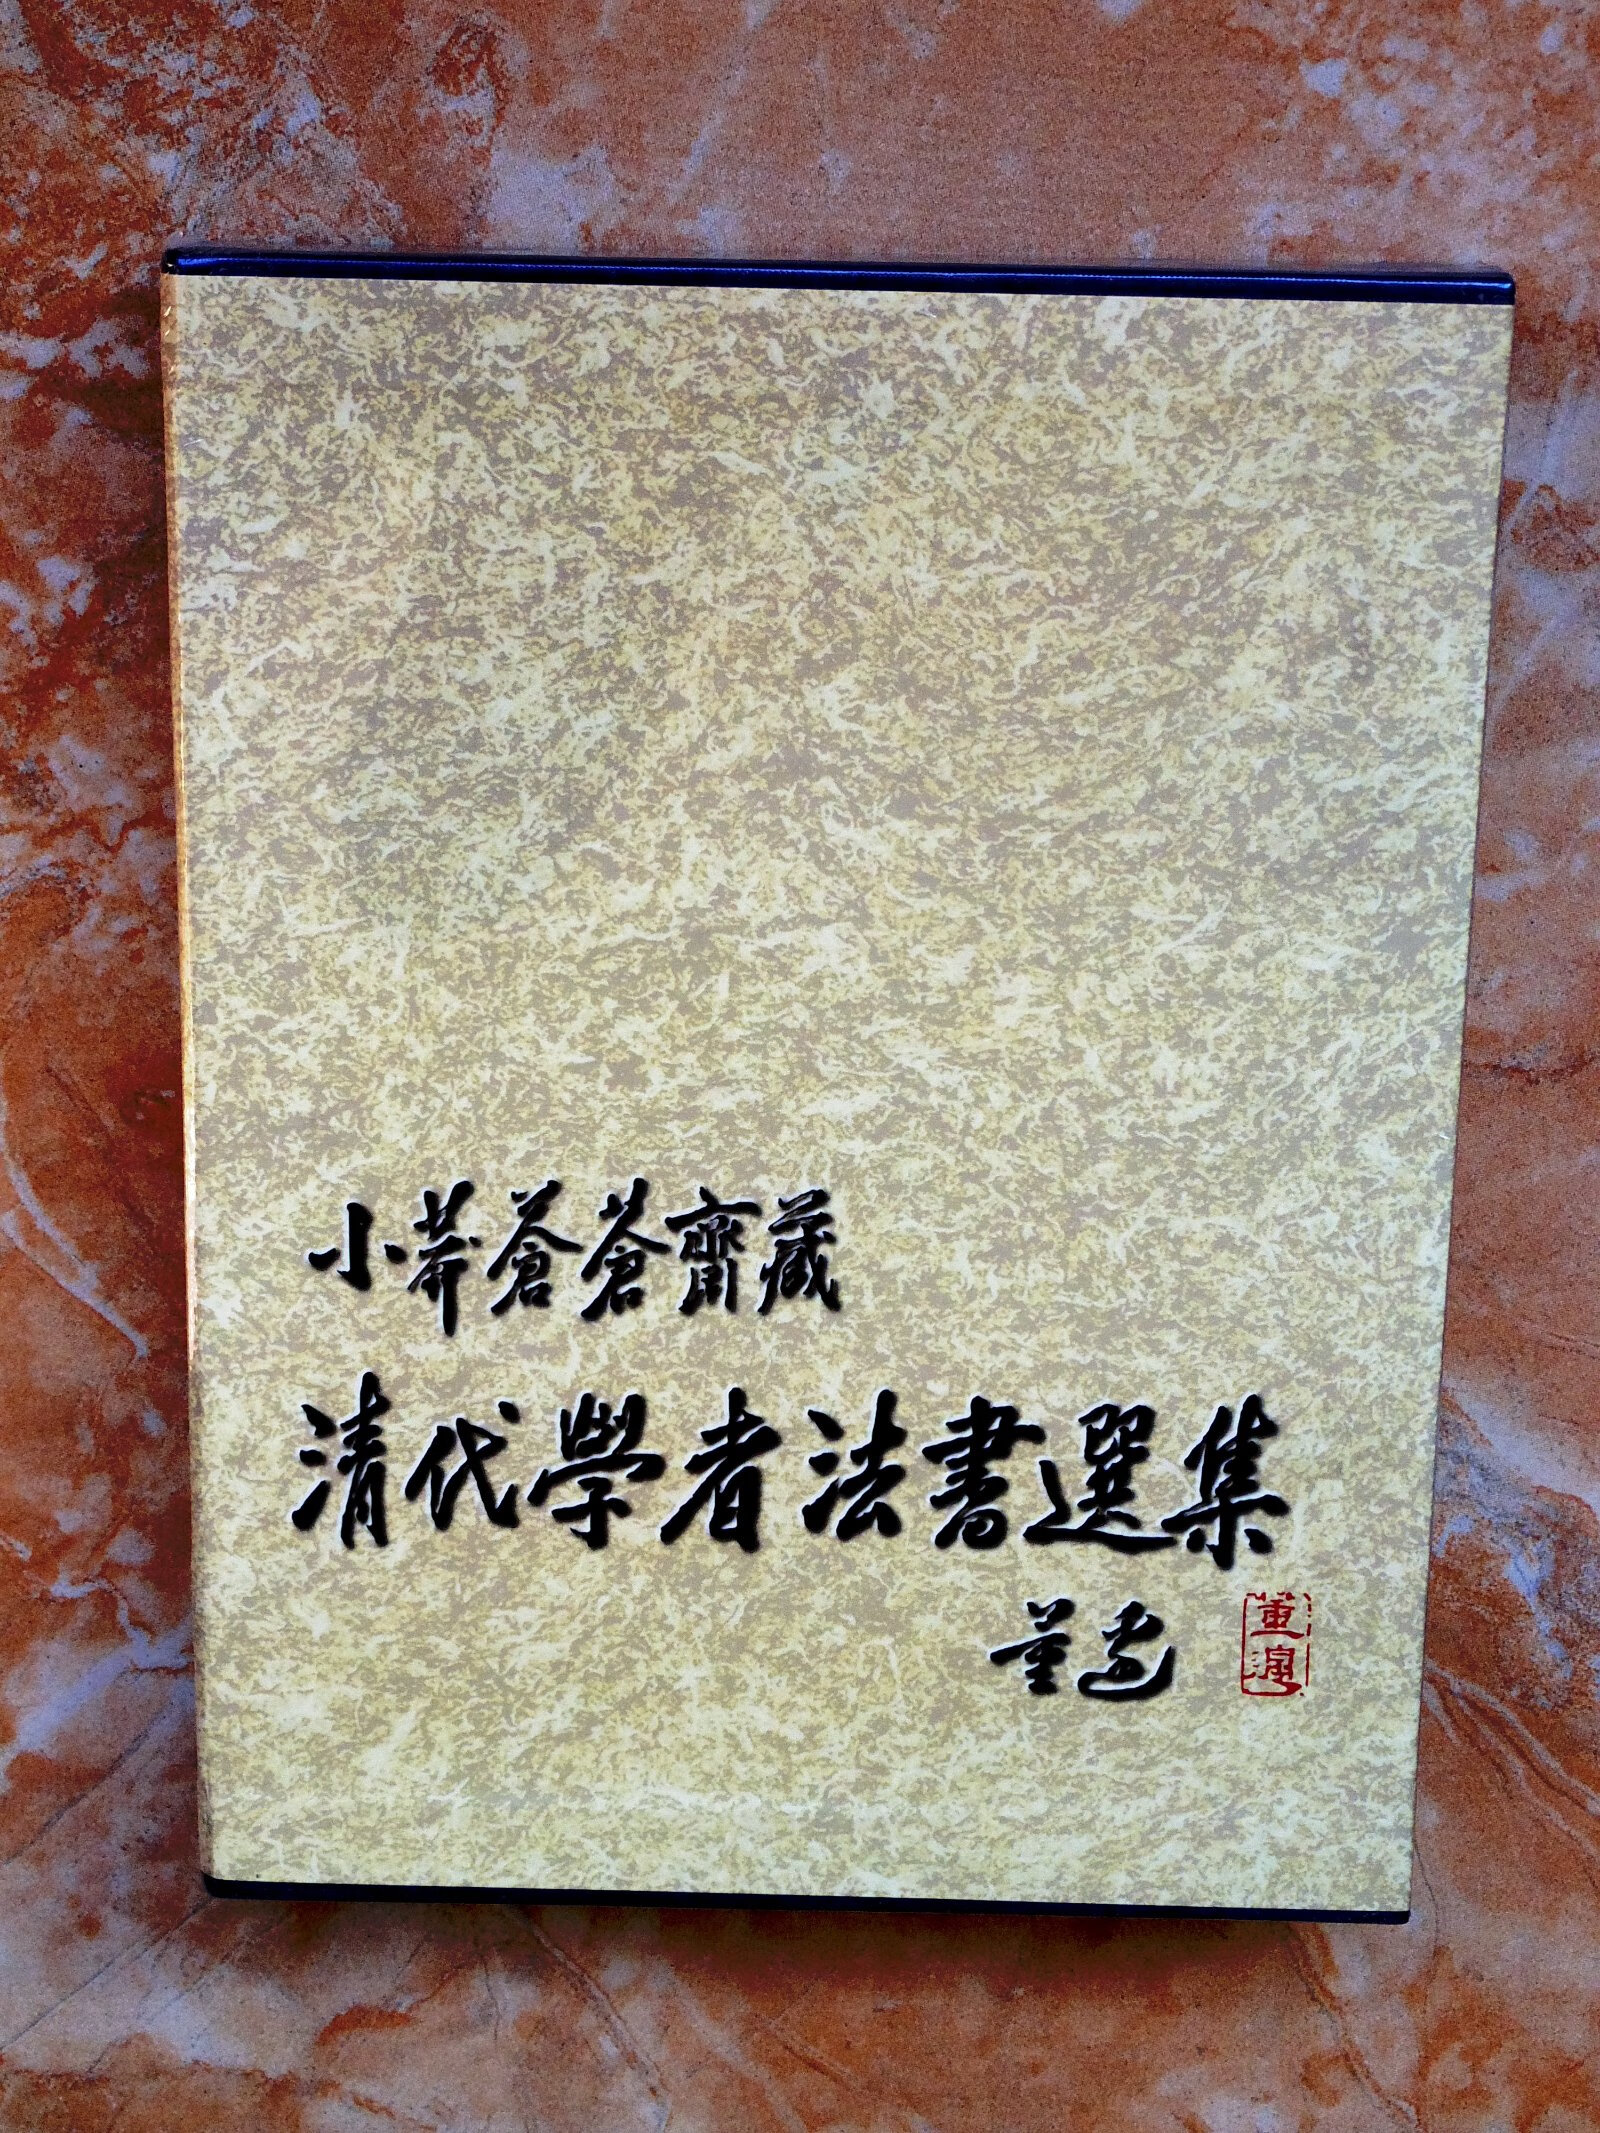 小莽蒼蒼齋藏
清代學者法書選集
董
董